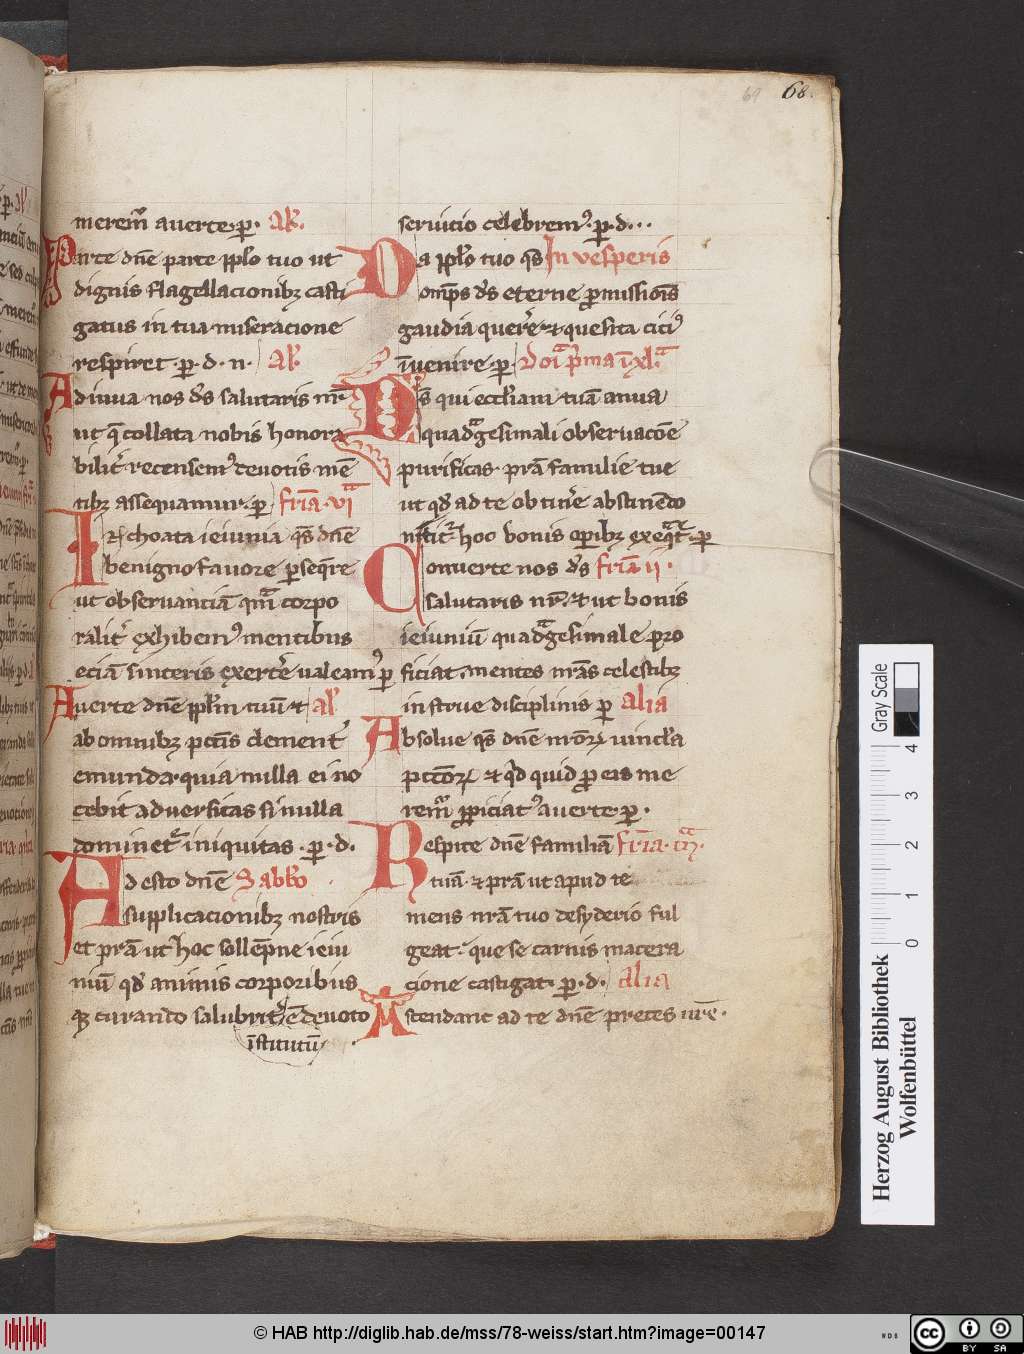 69 68.
merem̃ auerte · p̲ · al̃.
Parce dn̄e parce pp̄lo tuo ut
dignis flagellacionibꝫ casti
gatus in tua miseracione
respiret · p̲ · d · n · al̃.
Adiuua nos ds̄ salutaris nr̄
ut q̄ collata nobis honora
bilit᷑ recensemꝰ deuotis mē
tibꝫ assequamur · p̲ · friã · vi ͣ
Inchoata ieiunia qs̄ dn̄e
benigno fauore p̲seq̄re
ut obseruanciã qm̃ corpo
ralit᷑ exhibemꝰ mentibus
eciã sinceris exercēre ualeamꝰ p̲
Auerte dn̄e pp̄lm tuū & al̃
ab omnibꝫ pctīs clement᷑
emunda · quia nulla ei no
cebit aduersitas si nulla
dominet᷑ iniquitas · p̲ · d.
Adesto dn̄e Sabb̄o
supplicacionibꝫ nostris
et prã ut hoc sollēpne ieiu
niū qd̄ animis corporibus
qꝫ curando salubrit᷑ ē deuoto
īstitutū
seruicio celebremꝰ · p̲ · d · · ·
Da pp̄lo tuo qs̄ In vesperis
omps̄ ds̄ eterne p̲missionīs
gaudia querēre & quesita citiꝰ
īuenire · p̲ · Doī ͣ p̄ma ī xl ͣ
Ds̄ qui eccl̄iam tuã annua
quadᷓgesimali obseruacōe
purificas · prã familie tue
ut qd̄ ad te obtinēre abstinēdo
nitit᷑ hoc bonis op̲ibꝫ exeqᷓt᷑ · p̲
Conuerte nos ds̄ friã ii ·
salutaris nr̄ · & ut bonis
ieiuniū quadᷓgesimale pro
ficiat mentes nrãs celestibꝫ
instrue disciplinis p̲ alia
Absolue qs̄ dn̄e nr̄oꝝ uincl̄a
pctōꝝ & qd̄ quid p̲ eis me
rem̃ p̲piciatꝰ auerte · p̲ ·
Respice dn̄e familiã friã · iii ͣ ·
tuã · & prã ut apud te
mens nrã tuo desyderio ful
geat · que se carnis macera
cione castigat · p̲ · d · alia
Ascendant ad te dn̄e preces nr̄e ·
Herzog August Bibliothek
Wolfenbüttel
Gray Scale
0 1 2 3 4
© HAB http://diglib.hab.de/mss/78-weiss/start.htm?image=00147
cc BY SA